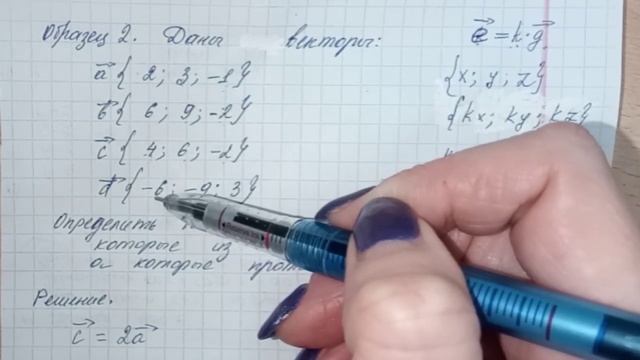 Образец 2. Даны векторы:
a⃗ { 2; 3; -1}
b⃗ { 6; 9; -2}
c⃗ { 4; 6; -2}
d⃗ { -6; -9; 3}
Определить
которые из
а которые
Решение.
c⃗ = 2a⃗
e⃗ = k·g⃗
{x; y; z}
{kx; ky; kz}